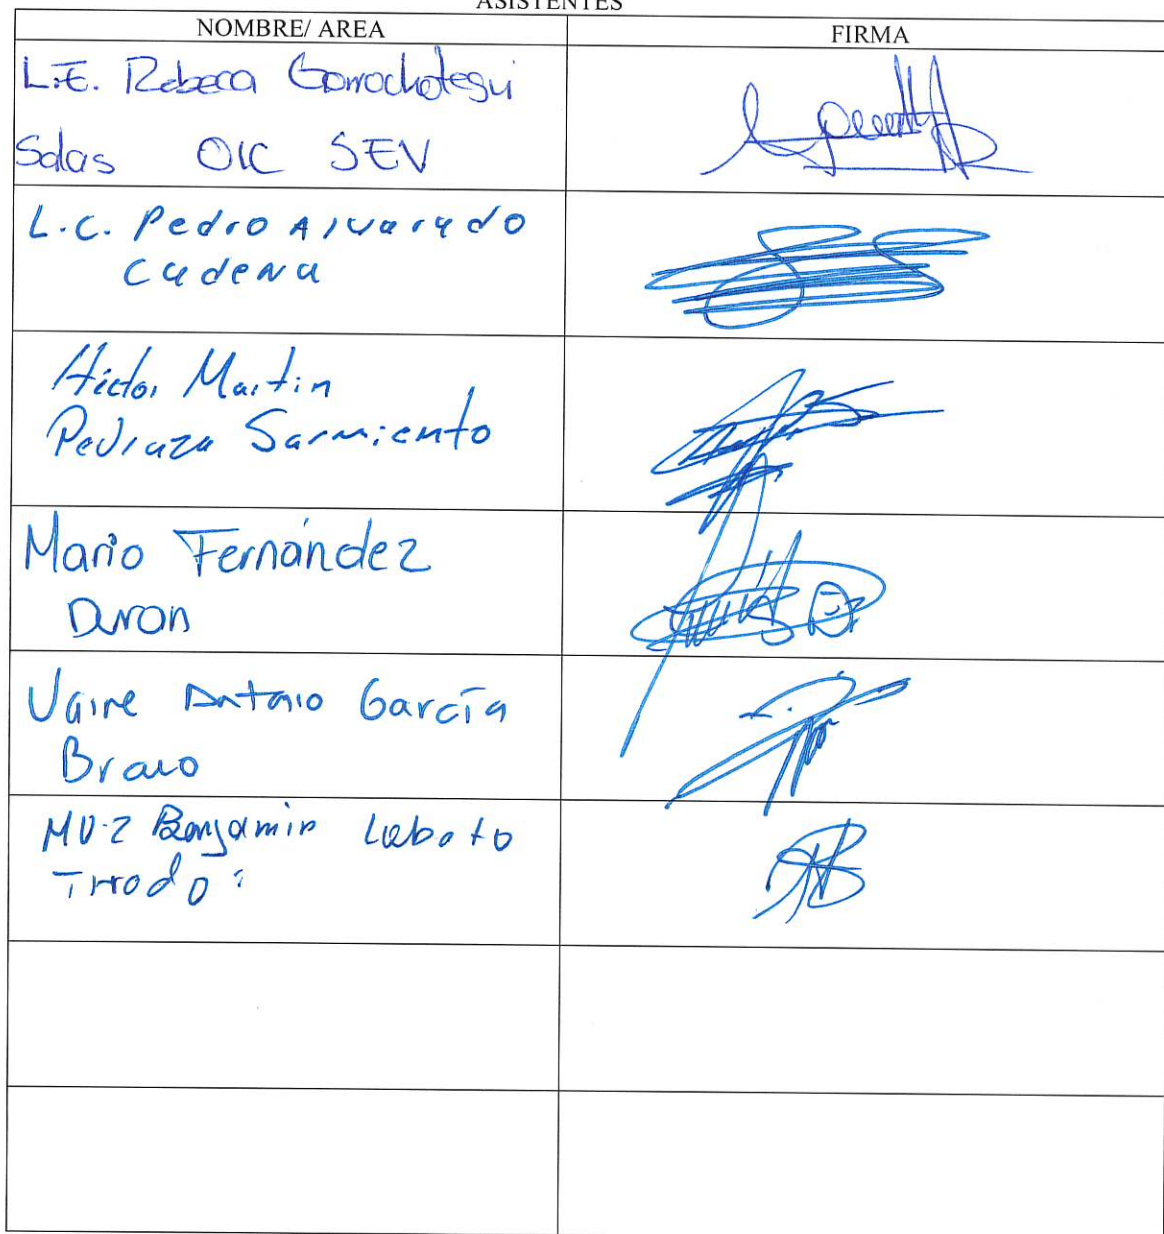 ASISTENTES
NOMBRE/ AREA FIRMA
L.E. Rebeca Gorrochotegui
Salas OIC SEV
L.C. Pedro Alvarado
Cadena
Héctor Martin
Pedraza Sarmiento
Mario Fernández
Duron
Jaime Antonio García
Bravo
MVZ Benjamin Lobato